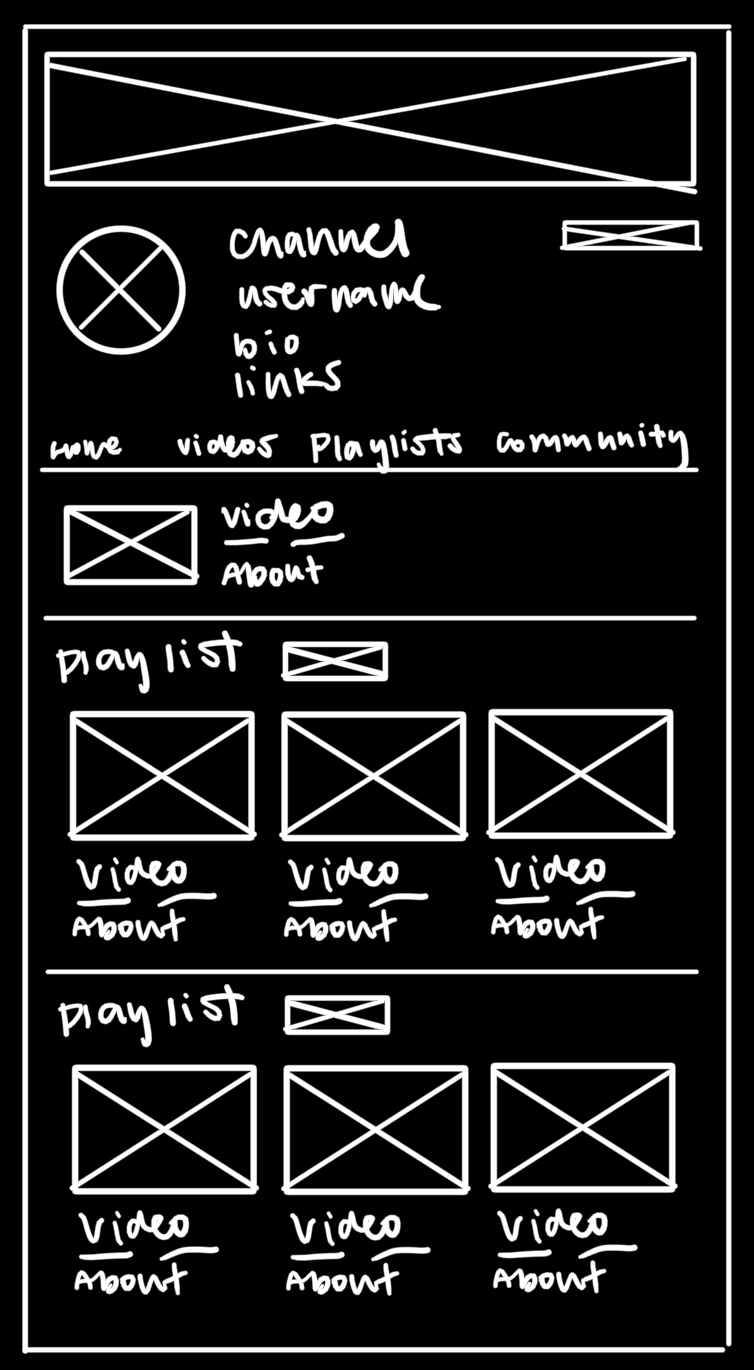 channel
username
bio
links
Home videos Playlists community
video
About
playlist
video video video
About About About
playlist
video video video
About About About